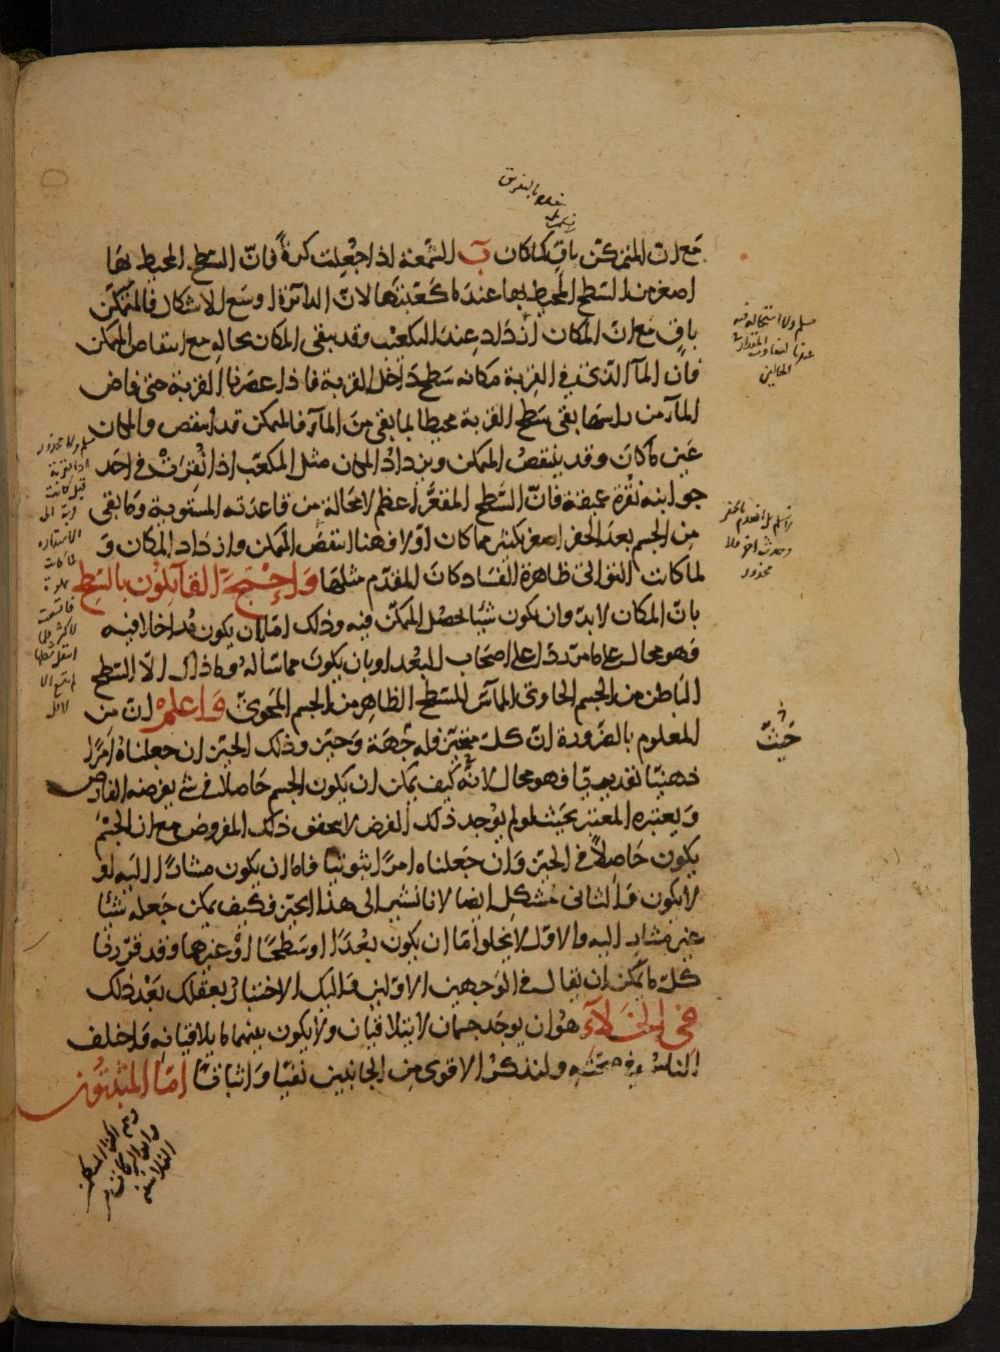 مع ان المتمكن باق كما كان ب الشمعة اذا جعلت كرة فان السطح المحيط بها
اصغر من السطح المحيط بها عند ما كعبتها لان الدائرة اوسع الاشكال فالمتمكن
باق مع ان المكان ازداد عند التكعب وقد يبقى المكان بحاله مع انتقاص المتمكن
فان الماء الذى فى القربة مكانه سطح داخل القربة فاذا عصرنا القربة حتى فاض
الماء من راسها بقى سطح القربة محيطا بما بقى من الماء فالمتمكن قد انتقص والمكان
عين ما كان وقد ينتقص المتمكن ويزداد المكان مثل المكعب اذا نقرت فى احد
جوانبه نقرة عميقة فان السطح المقعر اعظم لا محالة من قاعدته المستوية وما بقى
من الجسم بعد الحفر اصغر بكثير مما كان اولا فهنا انتقص المتمكن وازداد المكان و
لما كانت التوالى ظاهرة الفساد كان المقدم مثلها واحتج القائلون بالسطح
بان المكان لا بد وان يكون شيئا يحصل المتمكن فيه وذلك اما بان يكون مداخلا فيه
فهو محال على ما مر ردا على اصحاب البعد او بان يكون مماسا له وما ذاك الا السطح
الباطن من الجسم الحاوى المماس للسطح الظاهر من الجسم المحوى واعلم ان من
المعلوم بالضرورة ان كل متحيز فله جهة وحيز وذلك الحيز ان جعلناه امرا
ذهنيا تقديريا فهو محال لانه كيف يمكن ان يكون الجسم حاصلا فى شئ يفرضه الفارض
ويعتبره المعتبر بحيث لو لم يوجد ذلك الفرض لا يتحقق ذلك المفروض مع ان الجسم
يكون حاصلا فى الحيز وان جعلناه امرا ثبوتيا فاما ان يكون مشارا اليه او
لا يكون والثانى مشكل ايضا لانا نشير الى هذا الحيز فكيف يمكن جعله شيئا
غير مشار اليه والاول لا يخلوا اما ان يكون بعدا او سطحا او غيرهما وقد قررنا
كل ما يمكن ان يقال فى الوجهين الاولين واليك الاختيار بعقلك بعد ذلك
فى الخلاء هو ان يوجد جسمان لا يتلاقيان ولا يكون بينهما ما يلاقيانه واختلف
الناس فى صحته ولنذكر الاقوى من الجانبين نفيا واثباتا اما المثبتون
حيث